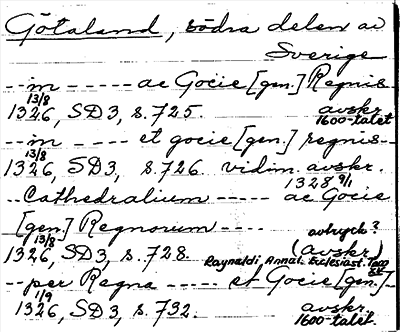 Götaland, södra delen av
Sverige
-- in ----- ac Gocie [gen.] Regnis
13/8 avskr.
1326, SD3, s. 725. 1600-talet
-- in - ---- et gocie [gen.] regnis --
13/8
1326, SD3, s. 726 vidim. avskr.
1328 9/1
-- Cathedralium ----- ac Gocie
[gen.] Regnorum ---- avtryck?
13/8 (avskr.)
1326, SD3, s. 728. Raynaldi, Annal. Ecclesiast.
-- per Regna ----- et Gocie [gen.] --
1/9 avskr.
1326, SD3, s. 732. 1600-talet